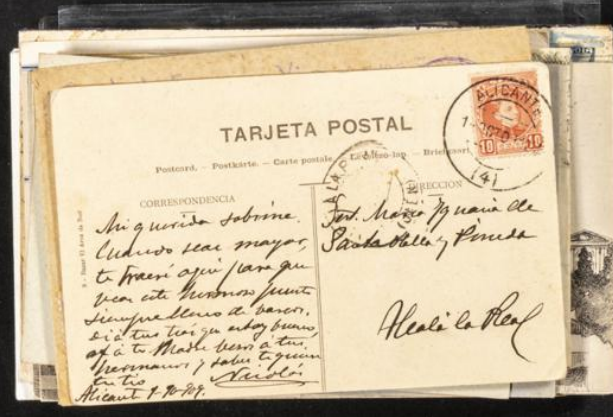 TARJETA POSTAL
Postcard. - Postkarte. - Carte postale. - Levelezo-lap. - Briefkaart
CORRESPONDENCIA
DIRECCION
ALICANTE
(4)
10 10
Mi querida sobrina.
Cuando seas mayor,
te traeré aquí para que
veas este hermoso puerto
siempre lleno de barcos.
Di á tus que estoy bueno,
á tu Madre besos á tus
hermanos y sabes te quiere
tu tio Nicolás
Alicante 909.
Srta. María Ignacia de
Santaolalla y Pineda
Alcalá la Real